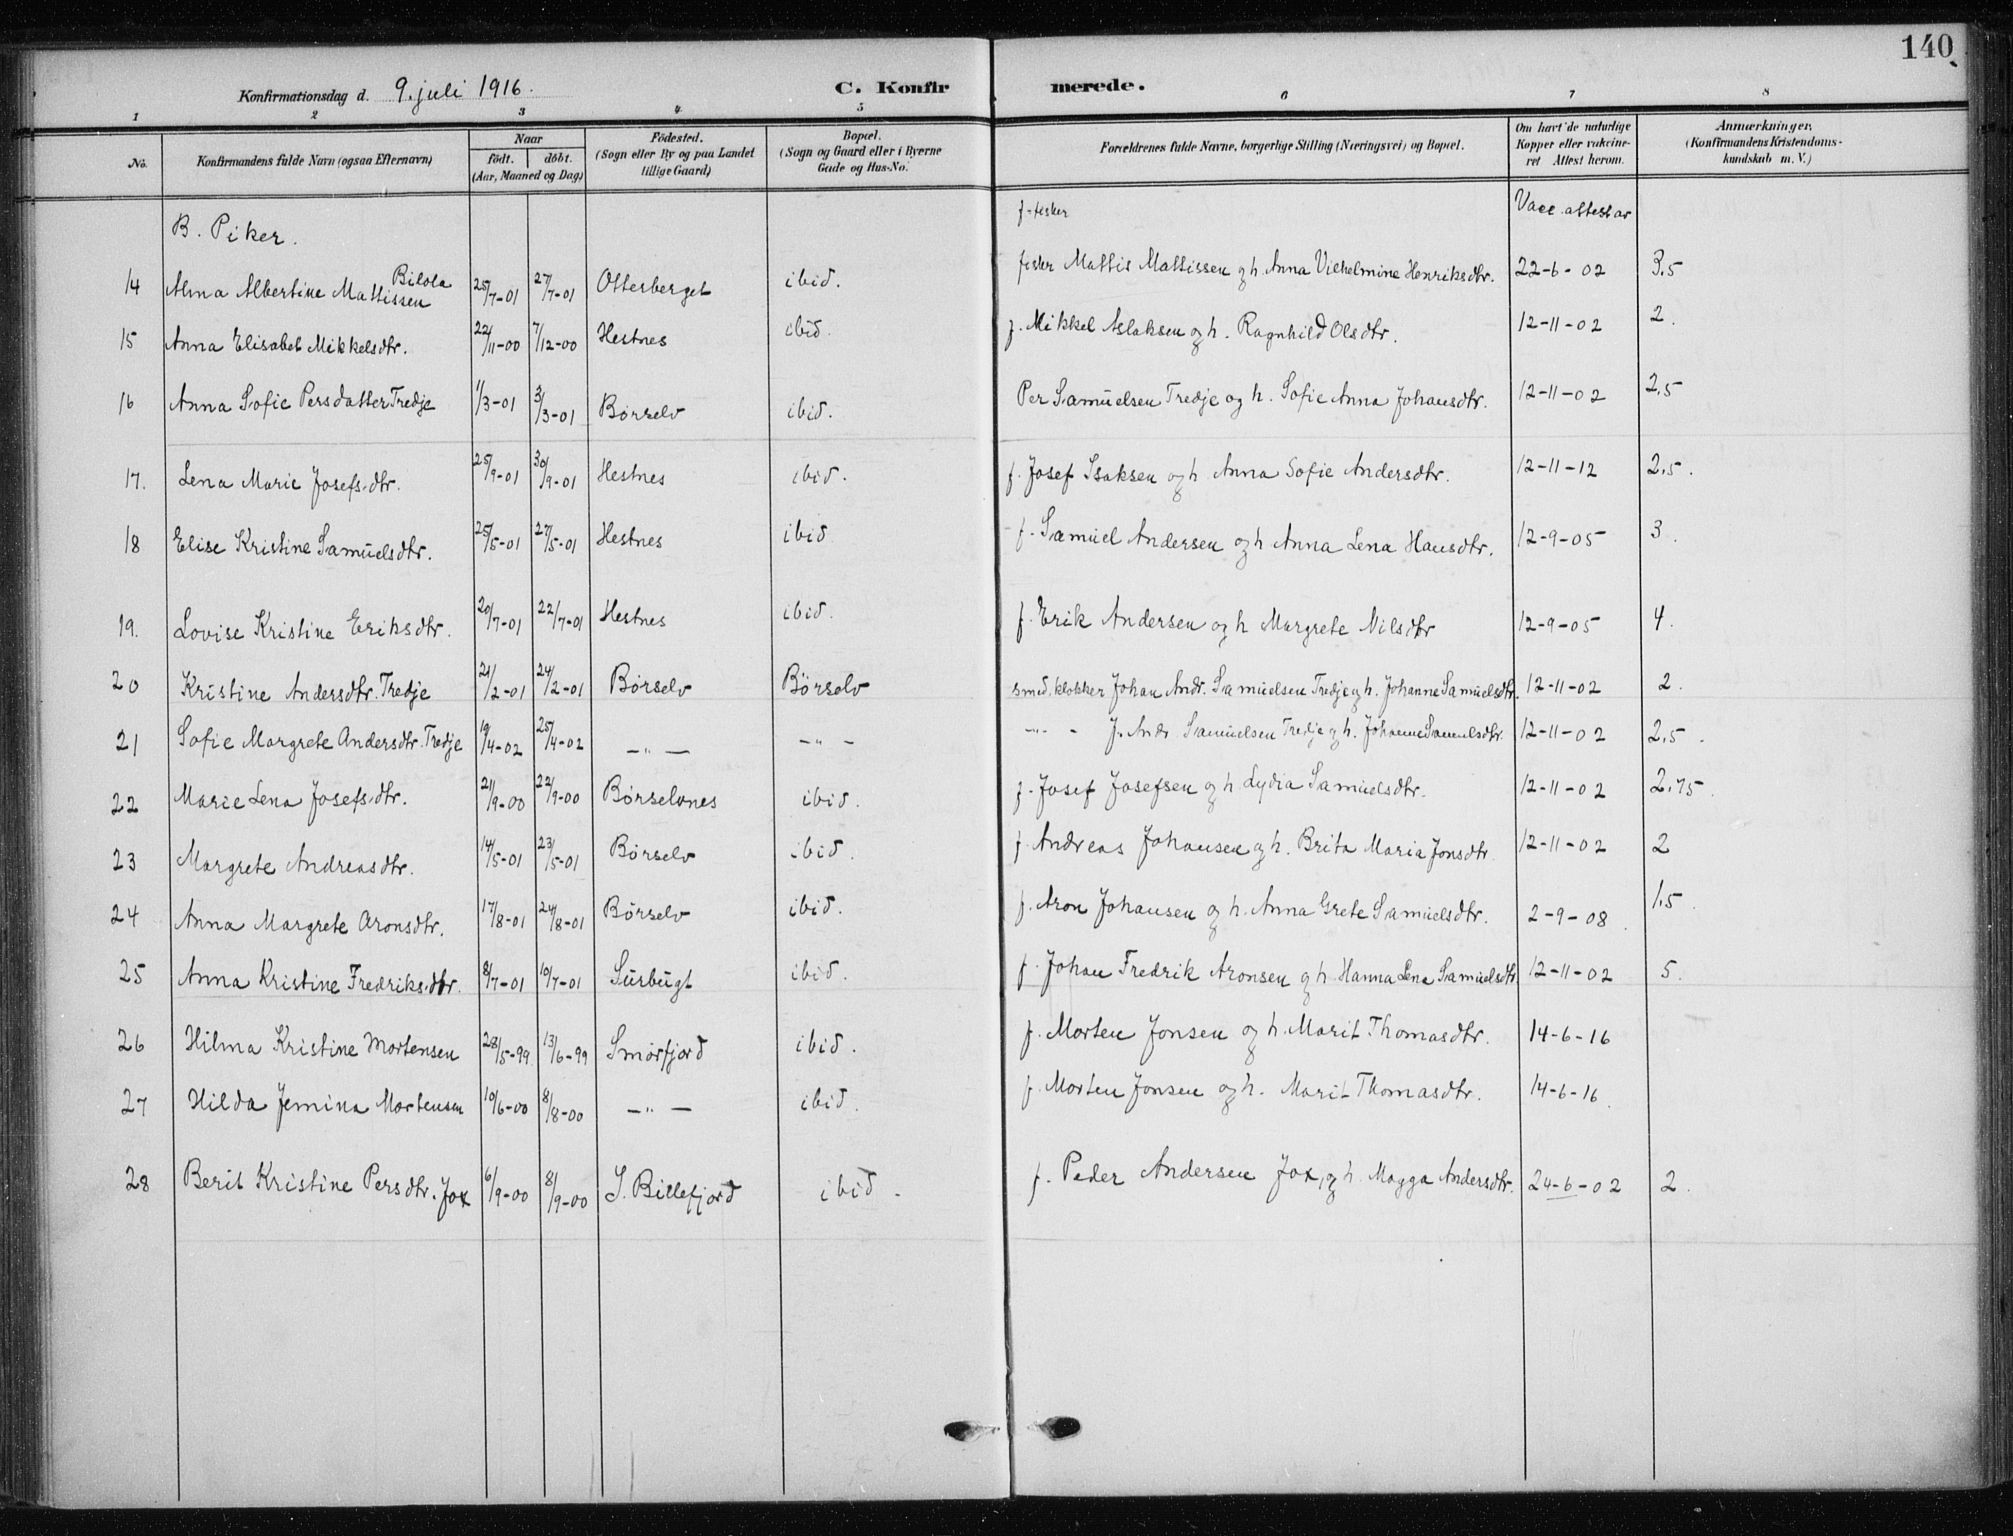 140
Konfirmationsdag d. 9. juli 1916. C. Konfirmerede.
1 2 3 4 5 6 7 8
No. Konfirmandens fulde Navn (ogsaa Efternavn) Naar födt. döbt. (Aar, Maaned og Dag) Födested. (Sogn eller By og paa Landet tillige Gaard) Bopæl. (Sogn og Gaard eller i Byerne Gade og Hus-No. Forældrenes fulde Navne, borgerlige Stilling (Næringsvei) og Bopæl. Om havt de naturlige Kopper eller vakcineret Attest herom. Anmærkninger. (Konfirmandens Kristendomskundskab m. V.)
B. Piker. f = fisker Vacc. attest av
14 Alma Albertine Mattissen Bilola 25/7-01 27/7-01 Otterberget ibid. fisker Mattis Mattissen og h. Anna Vilhelmine Henriksdtr. 22-6-02 3,5
15 Anna Elisabet Mikkelsdtr. 22/11-00 7/12-00 Hestnes ibid f. Mikkel Aslaksen og h. Ragnhild Olsdtr. 12-11-02 2.
16 Anna Sofie Persdatter Tredje 1/3-01 3/3-01 Børselv ibid. Per Samuelsen Tredje og h. Sofie Anna Johansdtr. 12-11-02 2,5
17. Lena Marie Josefsdtr. 25/9-01 30/9-01 Hestnes ibid. f. Josef Isaksen og h Anna Sofie Andersdtr. 12-11-12 2,5.
18 Elise Kristine Samuelsdtr. 25/5-01 27/5-01 Hestnes ibid f. Samuel Andersen og h Anna Lena Hansdtr. 12-9-05 3.
19. Lovise Kristine Eriksdtr. 20/7-01 22/7-01 Hestnes ibid. f. Erik Andersen og h Margrete Nilsdtr 12-9-05 4.
20 Kristine Andersdtr. Tredje 21/2-01 24/2-01 Børselv Børselv smed, klokker Johan Andr. Samuelsen Tredje og h. Johanne Samuelsdtr. 12-11-02 2.
21 Sofie Margrete Andersdtr. Tredje 19/4-02 25/4-02 — " — — " — — " — J. Andr. Samuelsen Tredje og h. Johanne Samuelsdtr. 12-11-02 2,5.
22 Marie Lena Josefsdtr. 21/9-00 22/9-00 Børselvnes ibid. f. Josef Josefsen og h Lydia Samuelsdtr. 12-11-02 2,75.
23 Margrete Andreasdtr. 14/5-01 23/5-01 Børselv ibid. f. Andreas Johansen og h. Brita Maria Jonsdtr. 12-11-02 2
24 Anna Margrete Aronsdtr. 17/8-01 24/8-01 Børselv ibid. f. Aron Johansen og h. Anna Grete Samuelsdtr. 2-9-08. 1,5.
25 Anna Kristine Fredriksdtr. 8/7-01 10/7-01 Surbugt ibid. f. Johan Fredrik Aronsen og h Hanna Lena Samuelsdtr. 12-11-02 5.
26 Hilma Kristine Mortensen 28/5-99 13/6-99 Smørfjord ibid. f. Morten Jonsen og h. Marit Thomasdtr. 14-6-16
27 Hilda Jemina Mortensen 10/6-00 8/8-00 — " — ibid. f. Morten Jonsen og h. Marit Thomasdtr. 14-6-16.
28 Berit Kristine Persdtr. Jox 6/9-00 8/9-00 S. Billefjord ibid. f. Peder Andersen Jox, og h. Magga Andersdtr. 24-6-02 2.